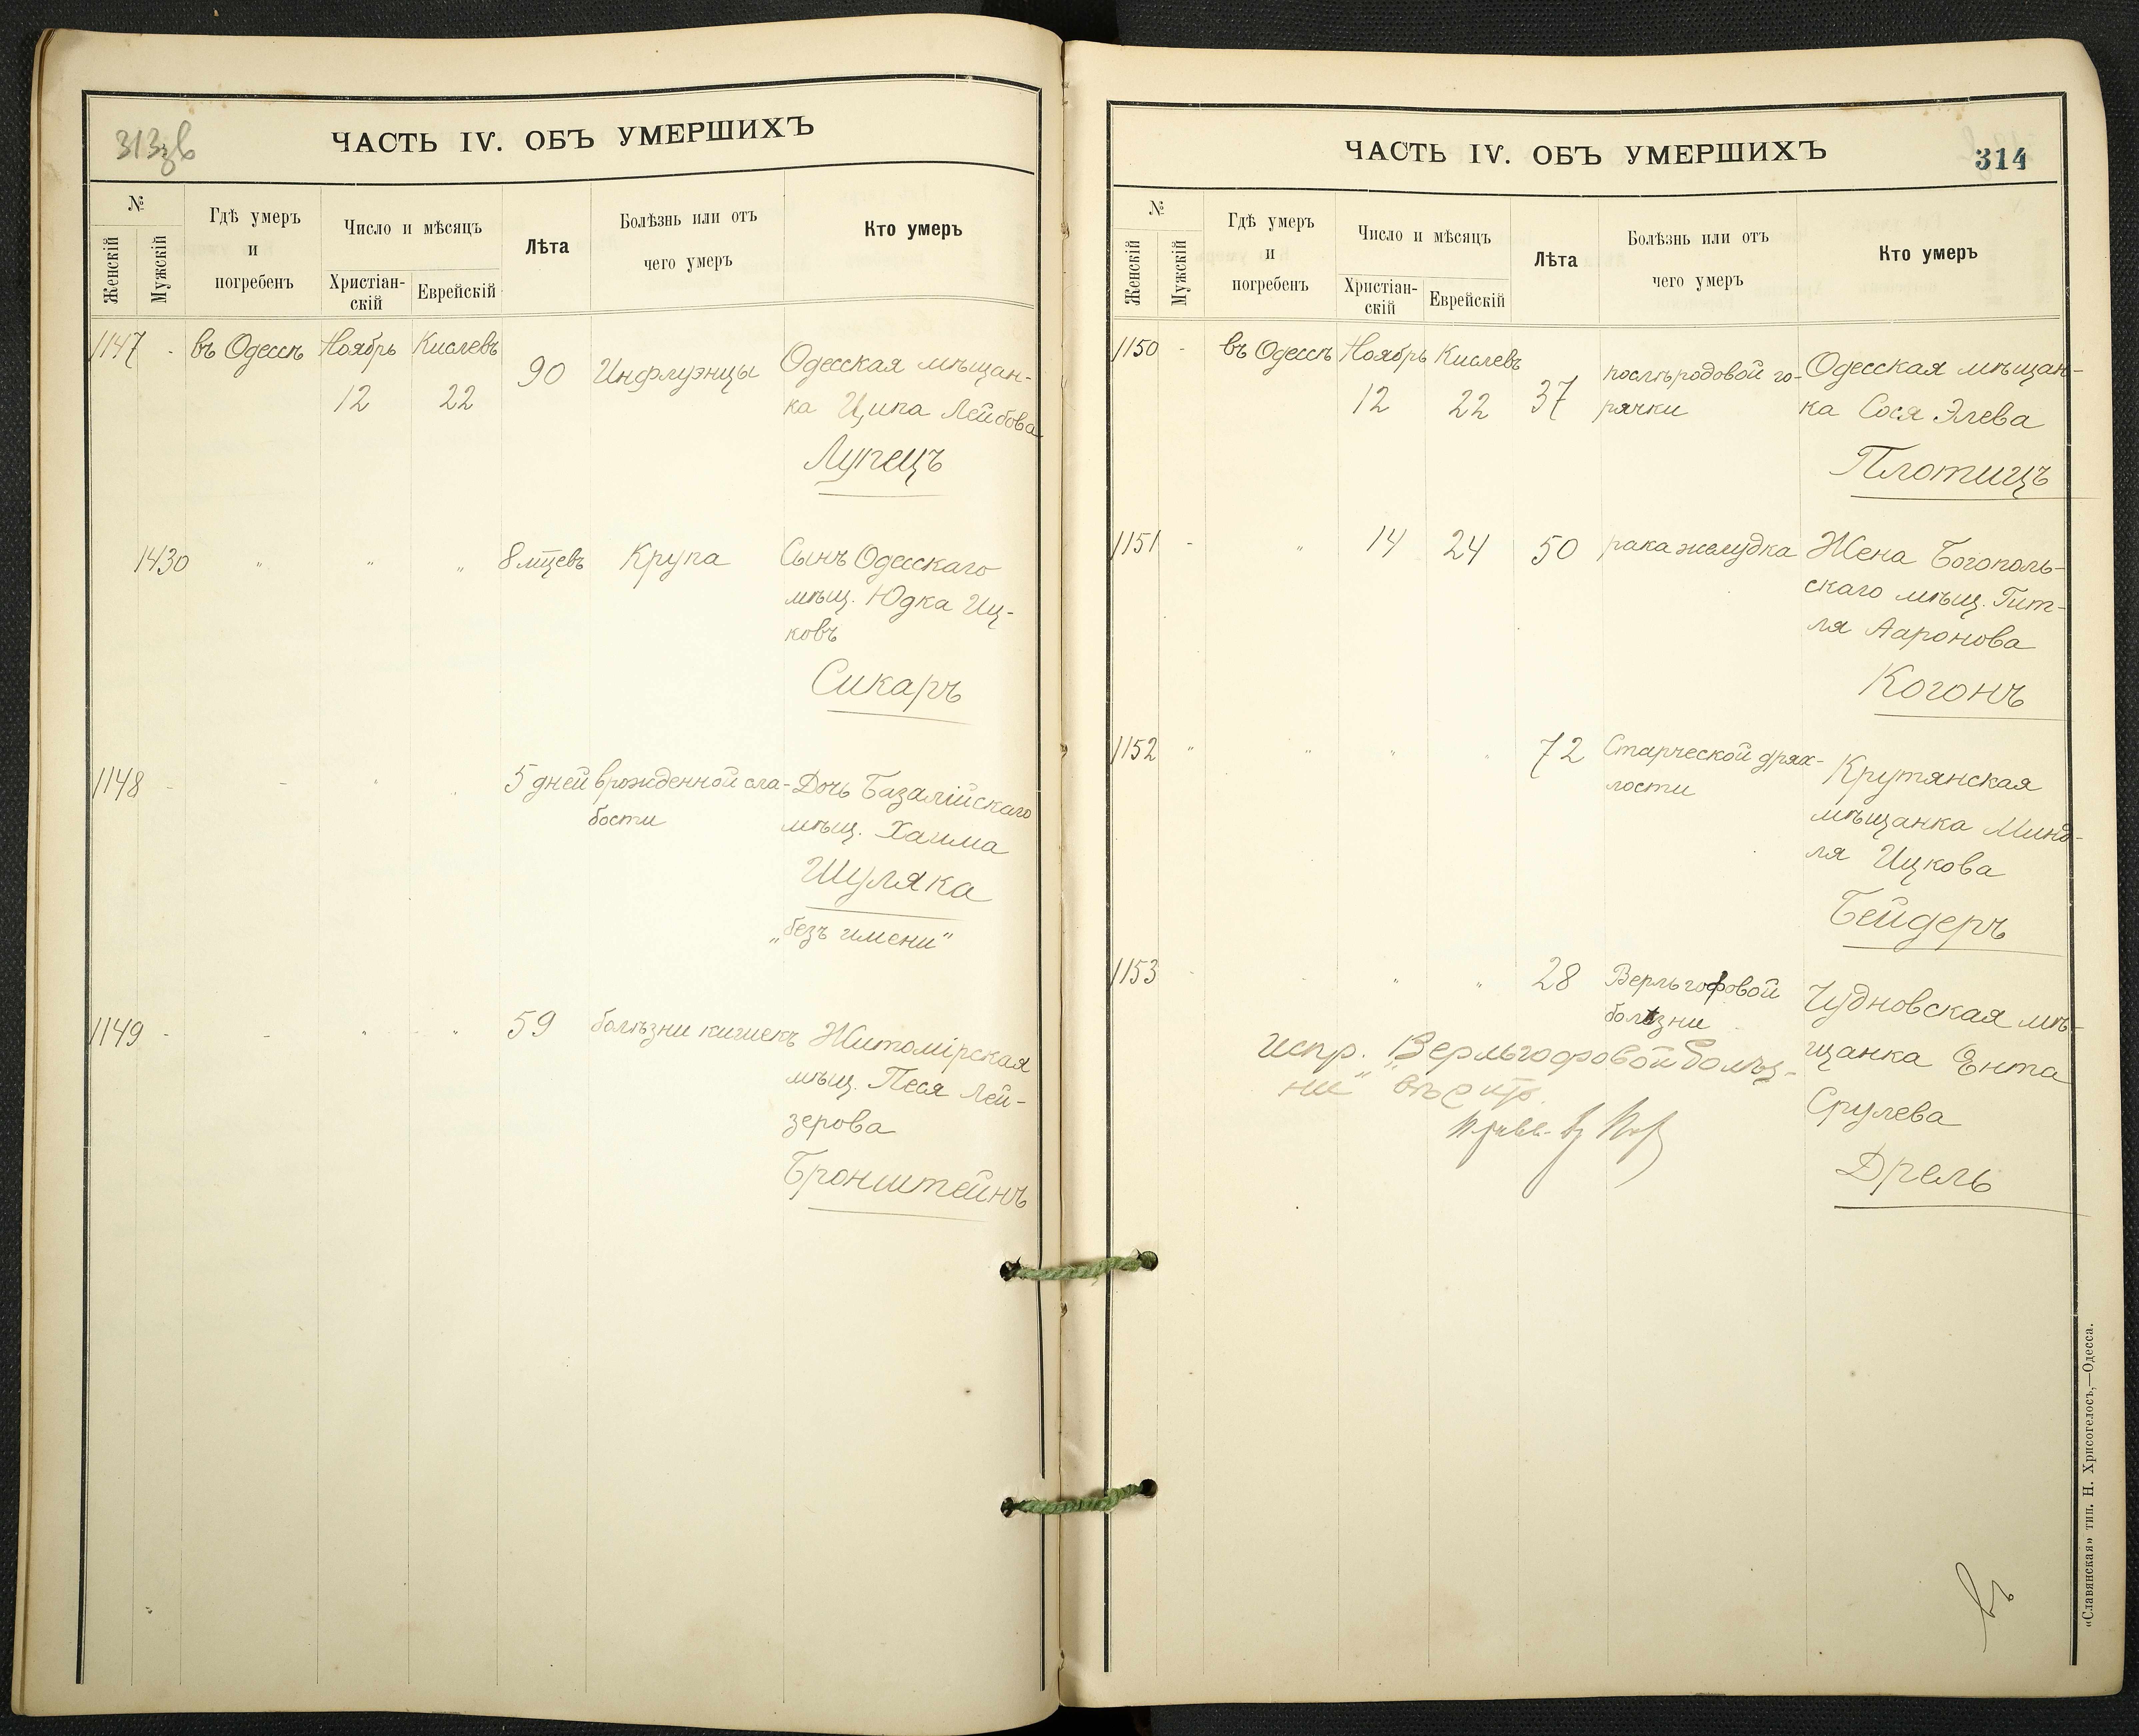 313
ЧАСТЬ IV. ОБЪ УМЕРШИХЪ
№
Женскій
Мужскій
Гдѣ умеръ
и
погребенъ
Число и мѣсяцъ
Христіан-
скій
Еврейскій
Лѣта
Болѣзнь или отъ
чего умеръ
Кто умеръ
1147 - въ Одессѣ Ноябрь 12 Кислевъ 22 90 Инфлуэнцы Одесская мѣщан-
ка Ципа Лейбова
Лупецъ
1430 " " " 8 мцевъ Крупа Сынъ Одесскаго
мѣщ. Юдка Иц-
ковъ
Сикаръ
1148 - - " " 5 дней врожденной сла- Дочь Базалійскаго
бости мѣщ. Хаима
Шуляка
„безъ имени"
1149 - - " " 59 болѣзни кишекъ Житомірская
мѣщ. Песя Лей-
зерова
Бронштейнъ
ЧАСТЬ IV. ОБЪ УМЕРШИХЪ
314
№
Женскій
Мужскій
Гдѣ умеръ
и
погребенъ
Число и мѣсяцъ
Христіан-
скій
Еврейскій
Лѣта
Болѣзнь или отъ
чего умеръ
Кто умеръ
1150 - въ Одессѣ Ноябрь 12 Кислевъ 22 37 послѣродовой го- Одесская мѣщан-
рячки ка Сося Элева
Плотицъ
1151 - " 14 24 50 рака желудка Жена Богополь-
скаго мѣщ. Гит-
ля Ааронова
Когонъ
1152 " " " " 72 Старческой дрях- Крутянская
лости мѣщанка Минд-
ля Ицкова
Бейдеръ
1153 - - " " 28 Верльгофовой Чудновская мѣ-
болѣзни щанка Ента
Срулева
Дрель
испр. „Верльгофовой болѣз-
ни"
«Славянская» тип. Н. Хрисогелосъ,—Одесса.